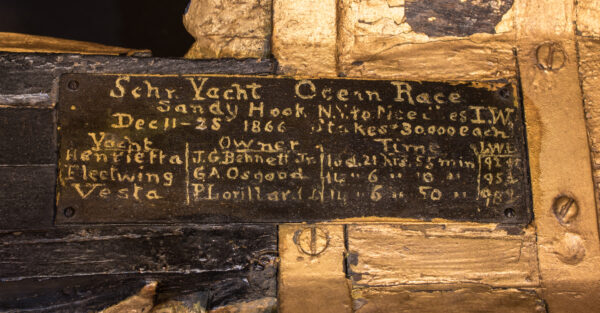 Schr. Yacht Ocean Race
Sandy Hook N.Y. to Needles I.W.
Dec 11-25 1866 Stakes $30,000 each
Yacht Owner Time
Henrietta J.G. Bennett Jr
Fleetwing G.A Osgood 14 " 6 " 10 "
Vesta P. Lorillard 14 " 6 " 50 "